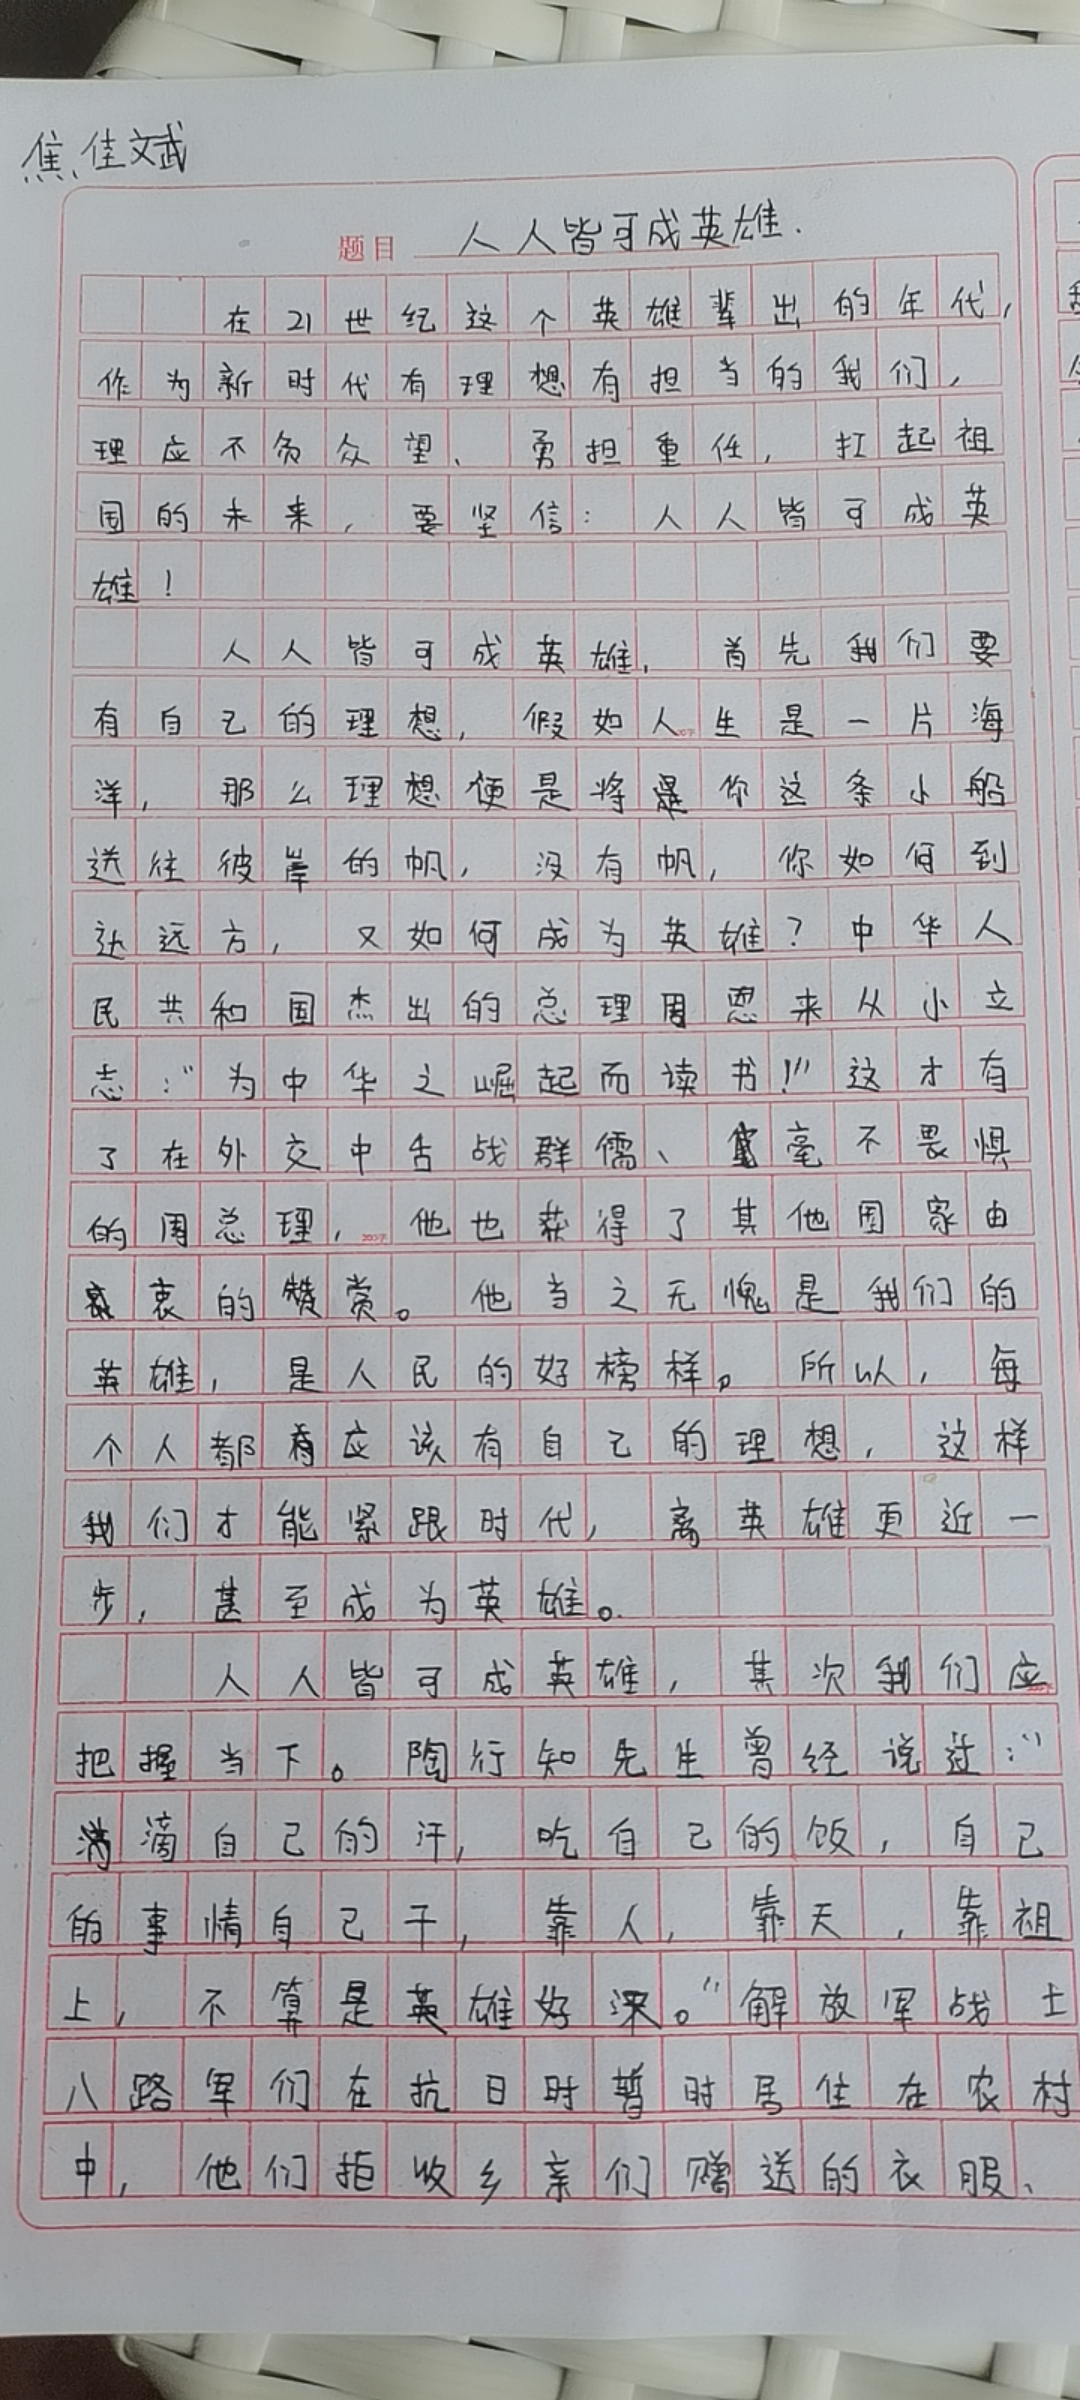 焦佳文斌
题目 人人皆可成英雄.
在21世纪这个英雄辈出的年代,
作为新时代有理想有担当的我们,
理应不负众望、勇担重任,扛起祖
国的未来,要坚信:人人皆可成英
雄!
人人皆可成英雄,首先我们要
有自己的理想,假如人生是一片海
洋,那么理想便是将你这条小船
送往彼岸的帆,没有帆,你如何到
达远方,又如何成为英雄?中华人
民共和国杰出的总理周恩来从小立
志:“为中华之崛起而读书!”这才有
了在外交中舌战群儒、毫不畏惧
的周总理,他也获得了其他国家由
衷的赞赏。他当之无愧是我们的
英雄,是人民的好榜样。所以,每
个人都应该有自己的理想,这样
我们才能紧跟时代,离英雄更近一
步,甚至成为英雄。
人人皆可成英雄,其次我们应
把握当下。陶行知先生曾经说过:“
滴自己的汗,吃自己的饭,自己
的事情自己干,靠人,靠天,靠祖
上,不算是英雄好汉。”解放军战士
八路军们在抗日时暂时居住在农村
中,他们拒收乡亲们赠送的衣服、